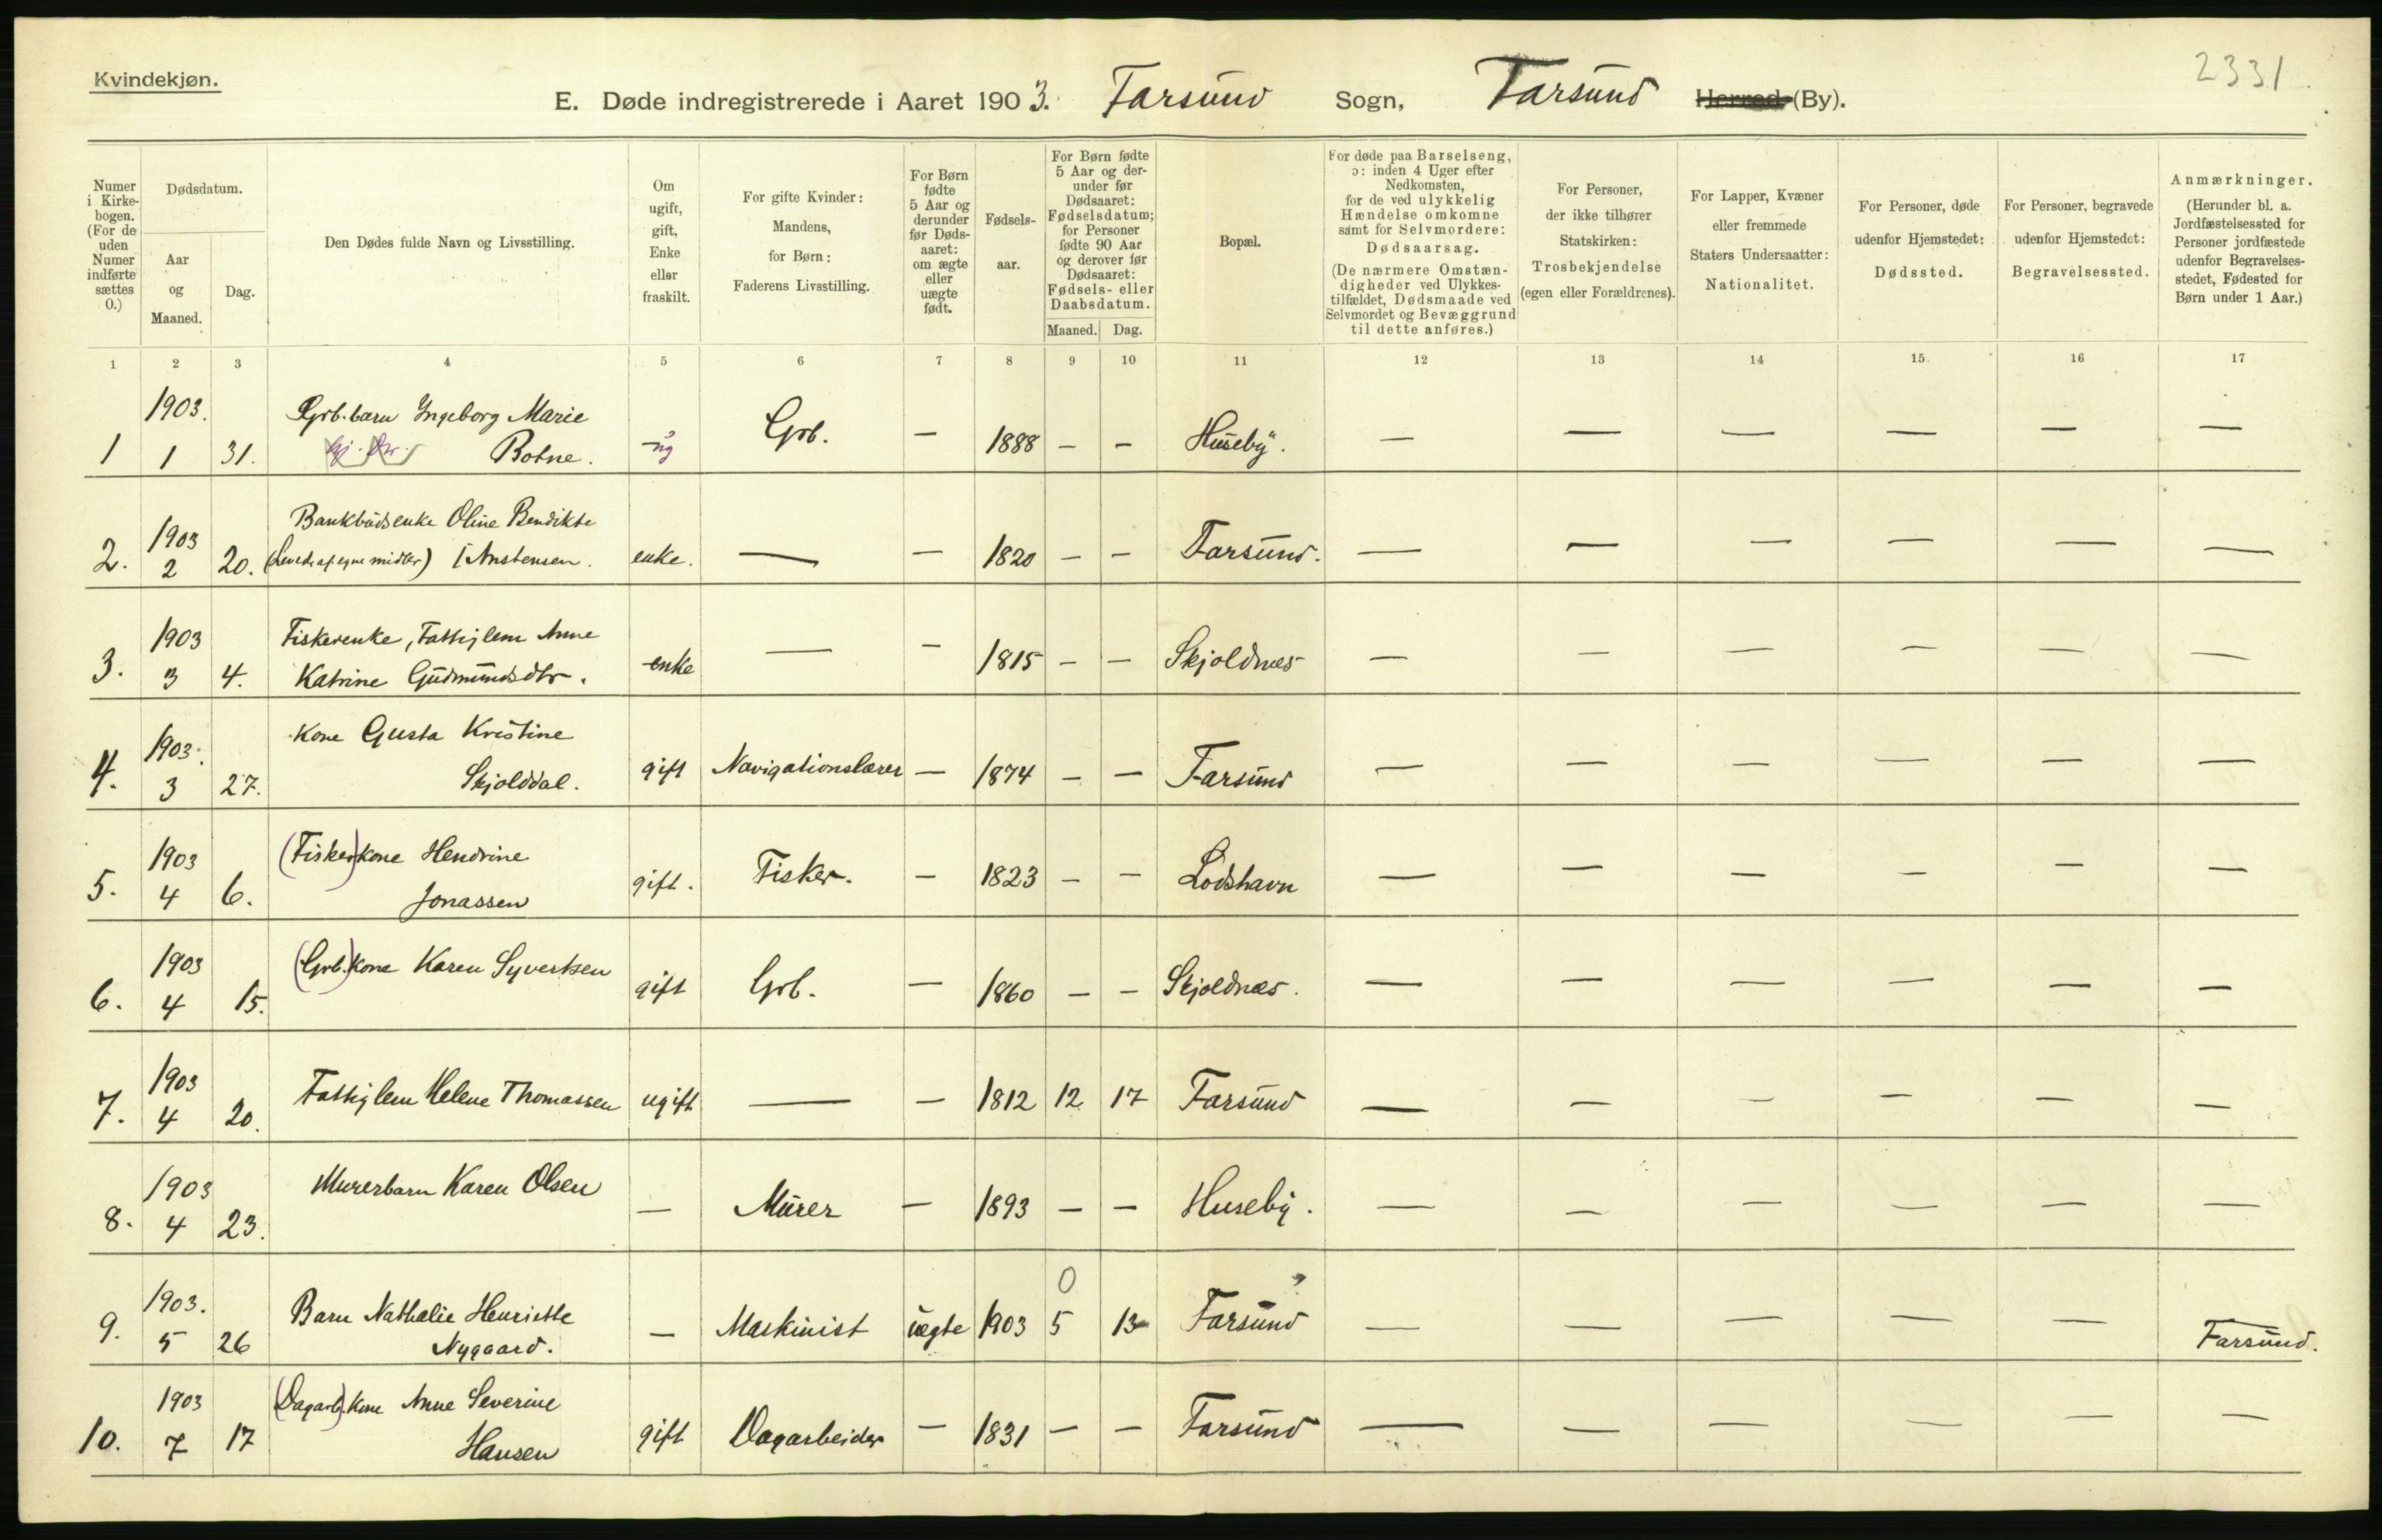 Kvindekjøn.
2331
E. Døde indregistrerede i Aaret 1903. Farsund Sogn, Farsund Herred (By).
Numer i Kirkebogen. (For de uden Numer indførte sættes 0.)
Dødsdatum.
Aar og Maaned.
Dag.
Den Dødes fulde Navn og Livsstilling.
Om ugift, gift, Enke eller fraskilt.
For gifte Kvinder: Mandens, for Børn: Faderens Livsstilling.
For Børn fødte 5 Aar og derunder før Dødsaaret: om ægte eller uægte født.
Fødselsaar.
For Børn fødte 5 Aar og derunder før Dødsaaret: Fødselsdatum; for Personer fødte 90 Aar og derover før Dødsaaret: Fødsels- eller Daabsdatum.
Maaned. Dag.
Bopæl.
For døde paa Barselseng, ɔ: inden 4 Uger efter Nedkomsten, for de ved ulykkelig Hændelse omkomne samt for Selvmordere: Dødsaarsag. (De nærmere Omstændigheder ved Ulykkestilfældet, Dødsmaade ved Selvmordet og Bevæggrund til dette anføres.)
For Personer, der ikke tilhører Statskirken: Trosbekjendelse (egen eller Forældrenes).
For Lapper, Kvæner eller fremmede Staters Undersaatter: Nationalitet.
For Personer, døde udenfor Hjemstedet: Dødssted.
For Personer, begravede udenfor Hjemstedet: Begravelsessted.
Anmærkninger. (Herunder bl. a. Jordfæstelsessted for Personer jordfæstede udenfor Begravelsesstedet, Fødested for Børn under 1 Aar.)
1 2 3 4 5 6 7 8 9 10 11 12 13 14 15 16 17
1903. Grb. barn Ingeborg Marie
1 1 31. Botne. ug Grb. — 1888 — — Huseby. — — — — — —
1903 Bankbudsenke Oline Bendikte
2. 2 20. (Leved af egne midler) Anstensen. enke. — — 1820 — — Farsund. — — — — — —
1903 Fiskerenke, Fattiglem Anne
3. 3 4. Katrine Gudmundsdtr. enke — — 1815 — — Skjoldnæs — — — — — —
1903. Kone Gusta Kristine
4. 3 27. Skjolddal. gift Navigationslærer — 1874 — — Farsund — — — — — —
1903 (Fisker)kone Hendrine
5. 4 6. Jonassen gift. Fisker. — 1823 — — Lodshavn — — — — — —
1903 (Grb.)kone Karen Syvertsen
6. 4 15. gift Grb. — 1860 — — Skjoldnæs. — — — — — —
1903 Fattiglem Helene Thomassen
7. 4 20. ugift — — 1812 12 17 Farsund — — — — — —
1903 Murerbarn Karen Olsen
8. 4 23. — Murer — 1893 — — Huseby. — — — — — —
0
1903. Barn Nathalie Henriette
9. 5 26 Nygaard. — Maskinist ægte 1903 5 13 Farsund — — — — — Farsund.
1903 (Dagarb.)kone Anne Severine
10. 7 17 Hansen gift Dagarbeider — 1831 — — Farsund — — — — — —